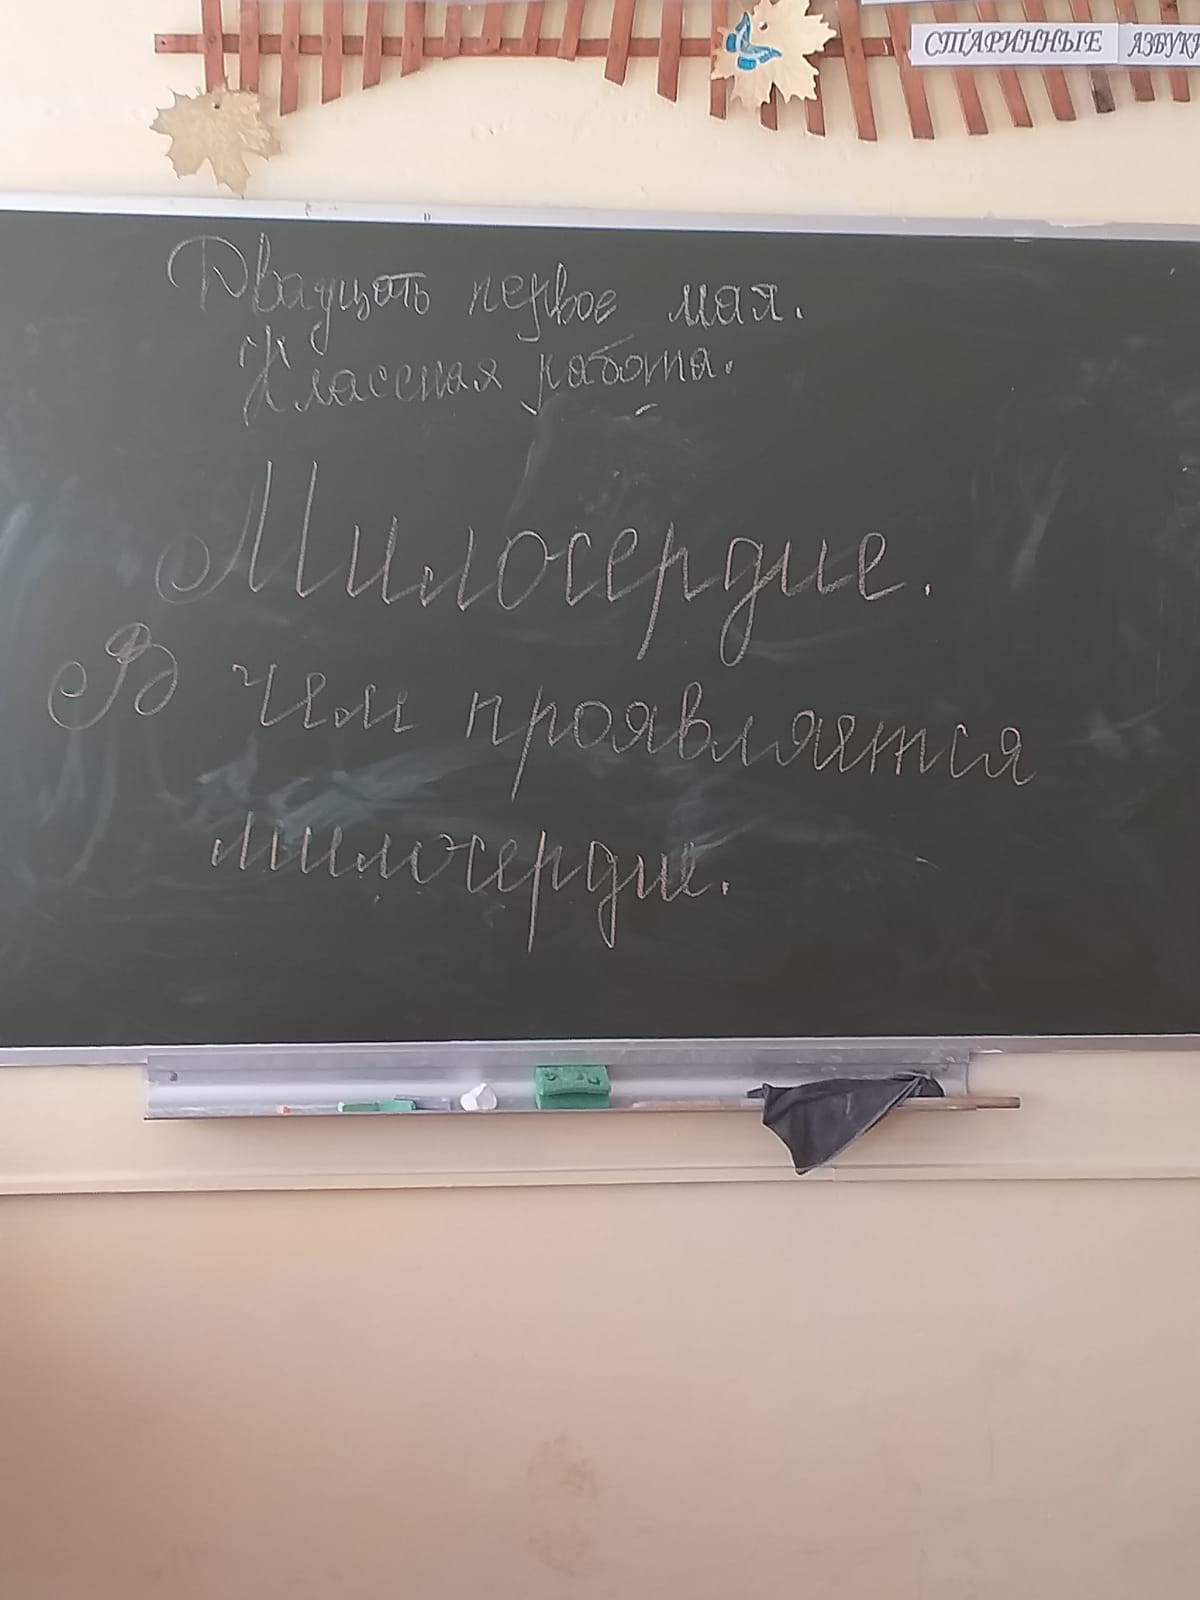 СТАРИННЫЕ АЗБУКИ
Двадцать первое мая.
Классная работа.
Милосердие.
В чем проявляется
милосердие.